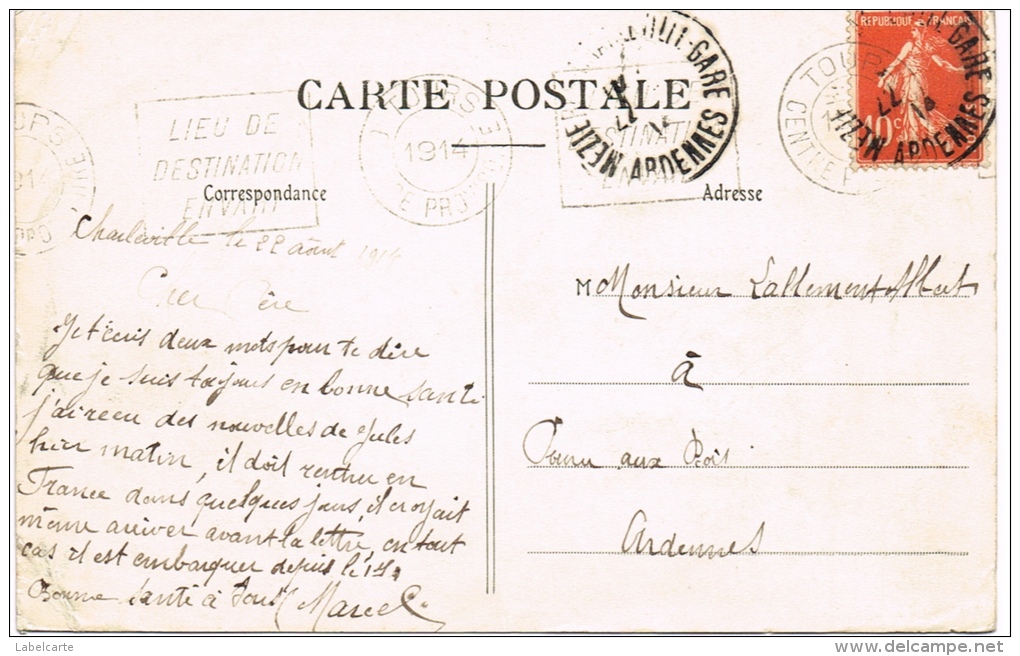 REPUBLIQUE FRANÇAISE
10c
CARTE POSTALE
LIEU DE
DESTINATION
EN VAIN
TOURS
1914
GARE
ARDENNES
Correspondance
Adresse
Charleville le 22 août 1914
Cher Père
Je t'écris deux mots pour te dire
que je suis toujours en bonne santé
j'ai recu des nouvelles de Jules
hier matin, il doit rentrer en
France dans quelques jours, il croyait
même arriver avant la lettre, en tout
cas il est embarquer depuis le 17
Bonne santé à tous Marcel
M Monsieur Lallement Albert
à
Pouru aux Bois
Ardennes
Labelcarte
www.delcampe.net